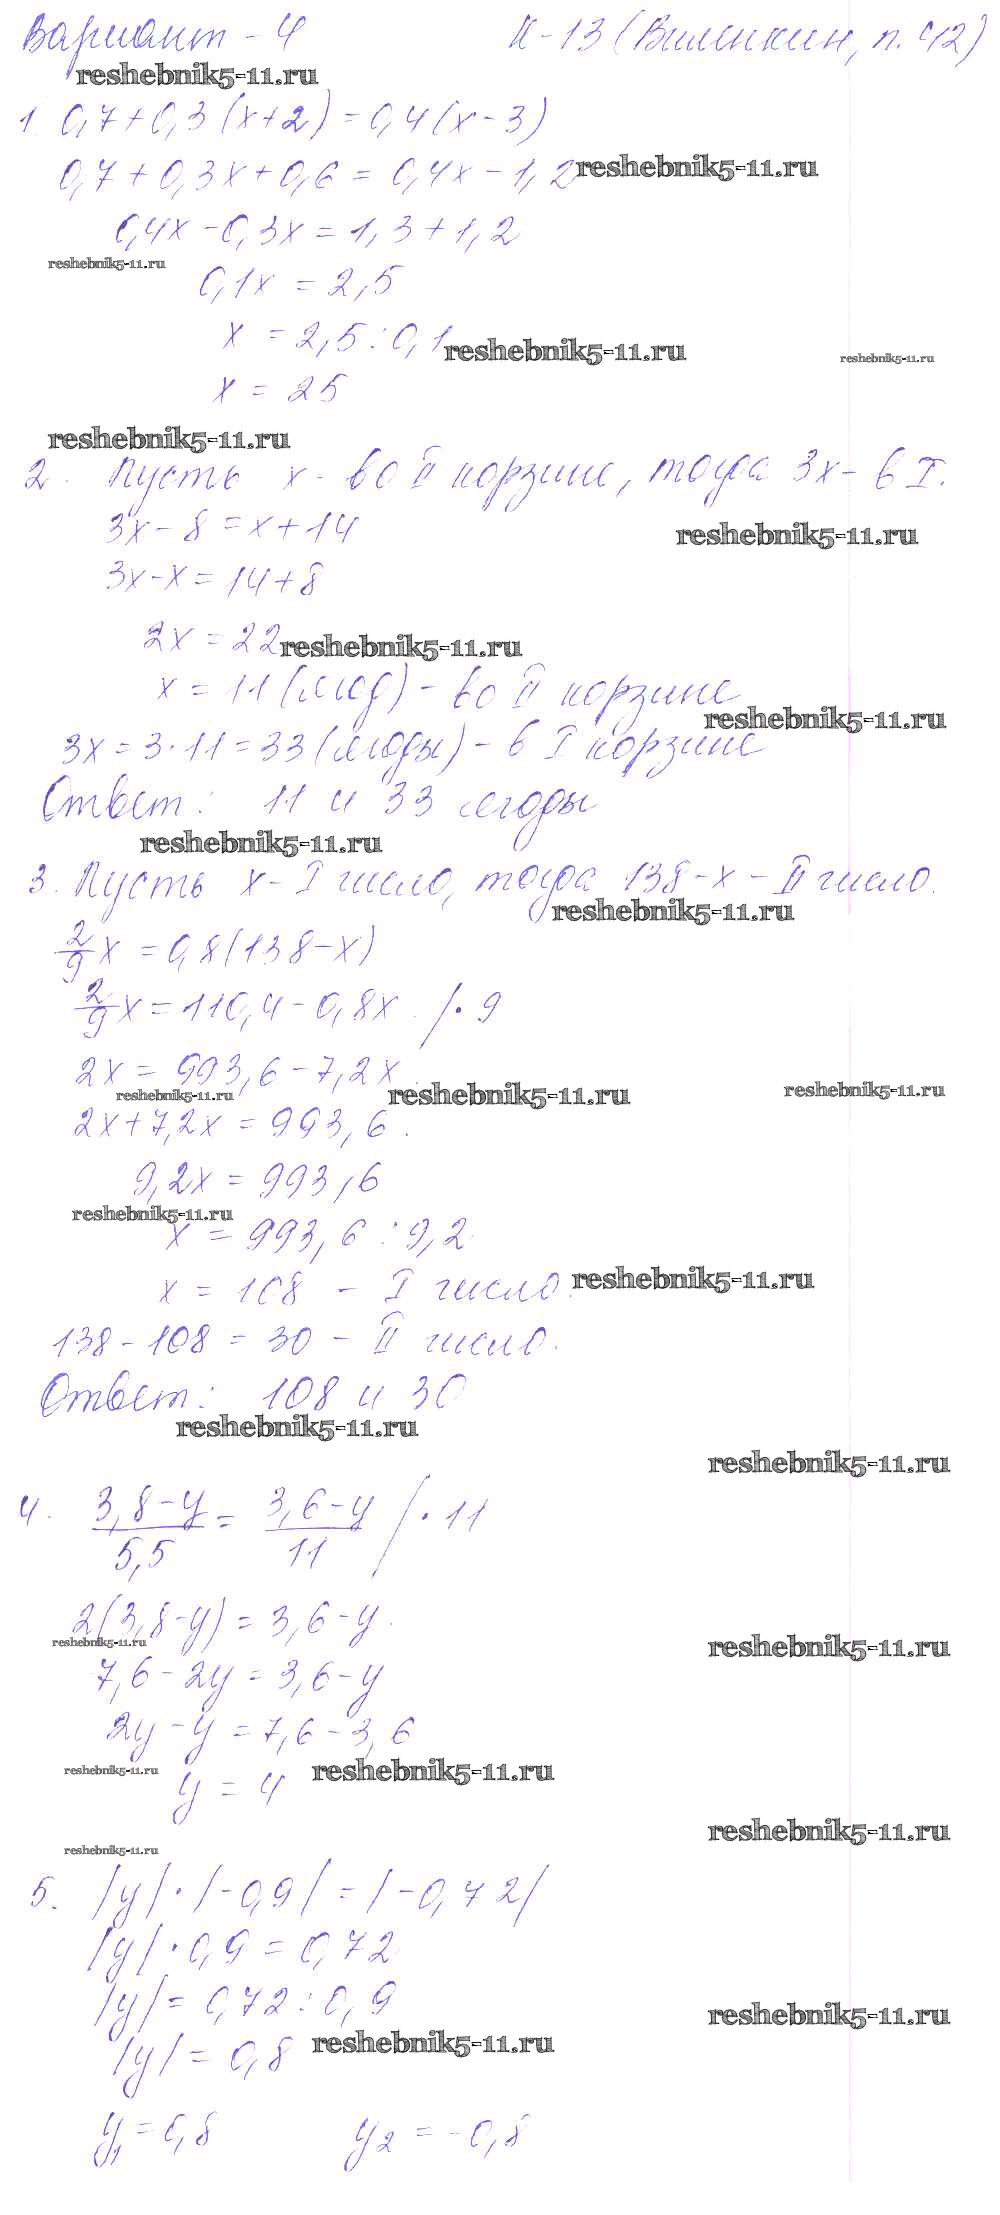 Вариант - 4 К-13 (Виленкин, п. 42)
reshebnik5-11.ru
1. 0,7+0,3(x+2)=0,4(x-3)
0,7+0,3x+0,6=0,4x-1,2
reshebnik5-11.ru
0,4x-0,3x=1,3+1,2
reshebnik5-11.ru
0,1x=2,5
x=2,5:0,1
reshebnik5-11.ru
reshebnik5-11.ru
x=25
reshebnik5-11.ru
2. Пусть x - во II корзине, тогда 3x - в I.
3x-8=x+14
reshebnik5-11.ru
3x-x=14+8
2x=22
reshebnik5-11.ru
x=11 (ягод) - во II корзине
reshebnik5-11.ru
3x=3·11=33 (ягоды) - в I корзине
Ответ: 11 и 33 ягоды
reshebnik5-11.ru
3. Пусть x - I число, тогда 138-x - II число.
reshebnik5-11.ru
2/9 x=0,8(138-x)
2/9 x=110,4-0,8x. /·9
2x=993,6-7,2x.
reshebnik5-11.ru
reshebnik5-11.ru
reshebnik5-11.ru
2x+7,2x=993,6.
9,2x=993,6
reshebnik5-11.ru
x=993,6:9,2
x=108 - I число.
reshebnik5-11.ru
138-108=30 - II число.
Ответ: 108 и 30
reshebnik5-11.ru
reshebnik5-11.ru
4. 3,8-y/5,5 = 3,6-y/11 /·11
2(3,8-y)=3,6-y.
reshebnik5-11.ru
reshebnik5-11.ru
7,6-2y=3,6-y
2y-y=7,6-3,6
reshebnik5-11.ru
reshebnik5-11.ru
y=4
reshebnik5-11.ru
reshebnik5-11.ru
5. |y|·|-0,9|=|-0,72|
|y|·0,9=0,72
|y|=0,72:0,9
reshebnik5-11.ru
|y|=0,8
reshebnik5-11.ru
y1=0,8 y2=-0,8